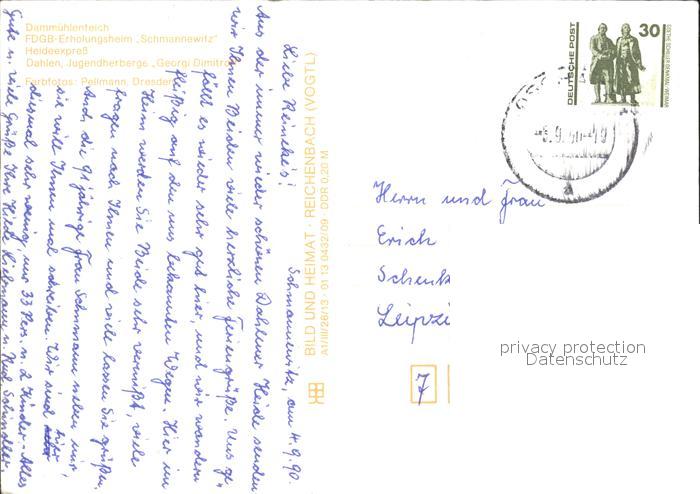 Dammühlenteich
FDGB-Erholungsheim "Schmannewitz"
Heideexpreß
Dahlen, Jugendherberge "Georgi Dimitroff"
Farbfotos: Pellmann, Dresden
BILD UND HEIMAT · REICHENBACH (VOGTL)
A1/III/26/13 · 01 13 0432/09 · DDR 0,20 M
Schmannewitz, am 4.9.90.
Liebe
Aus der immer wieder schönen Dahlener Heide senden
wir Ihnen Beiden viele herzliche Feriengrüße. Uns ge-
fällt es wieder sehr gut hier, und wir wandern
fleißig auf den uns bekannten Wegen. Hier im
Heim werden Sie Beide sehr vermißt, viele
fragen nach Ihnen und viele lassen Sie grüßen.
Auch die 91 jährige Frau Schumann neben mir,
sie will Ihnen mal schreiben. Wir sind hier,
diesmal sehr wenig, nur 33 Pers. u. 2 Kinder. Alles
Gute u. viele Grüße Ihre
DEUTSCHE POST
30
GOETHE-SCHILLER-DENKMAL WEIMAR
Herrn und Frau
Erich
Schenk
Leipzi
7
privacy protection
Datenschutz